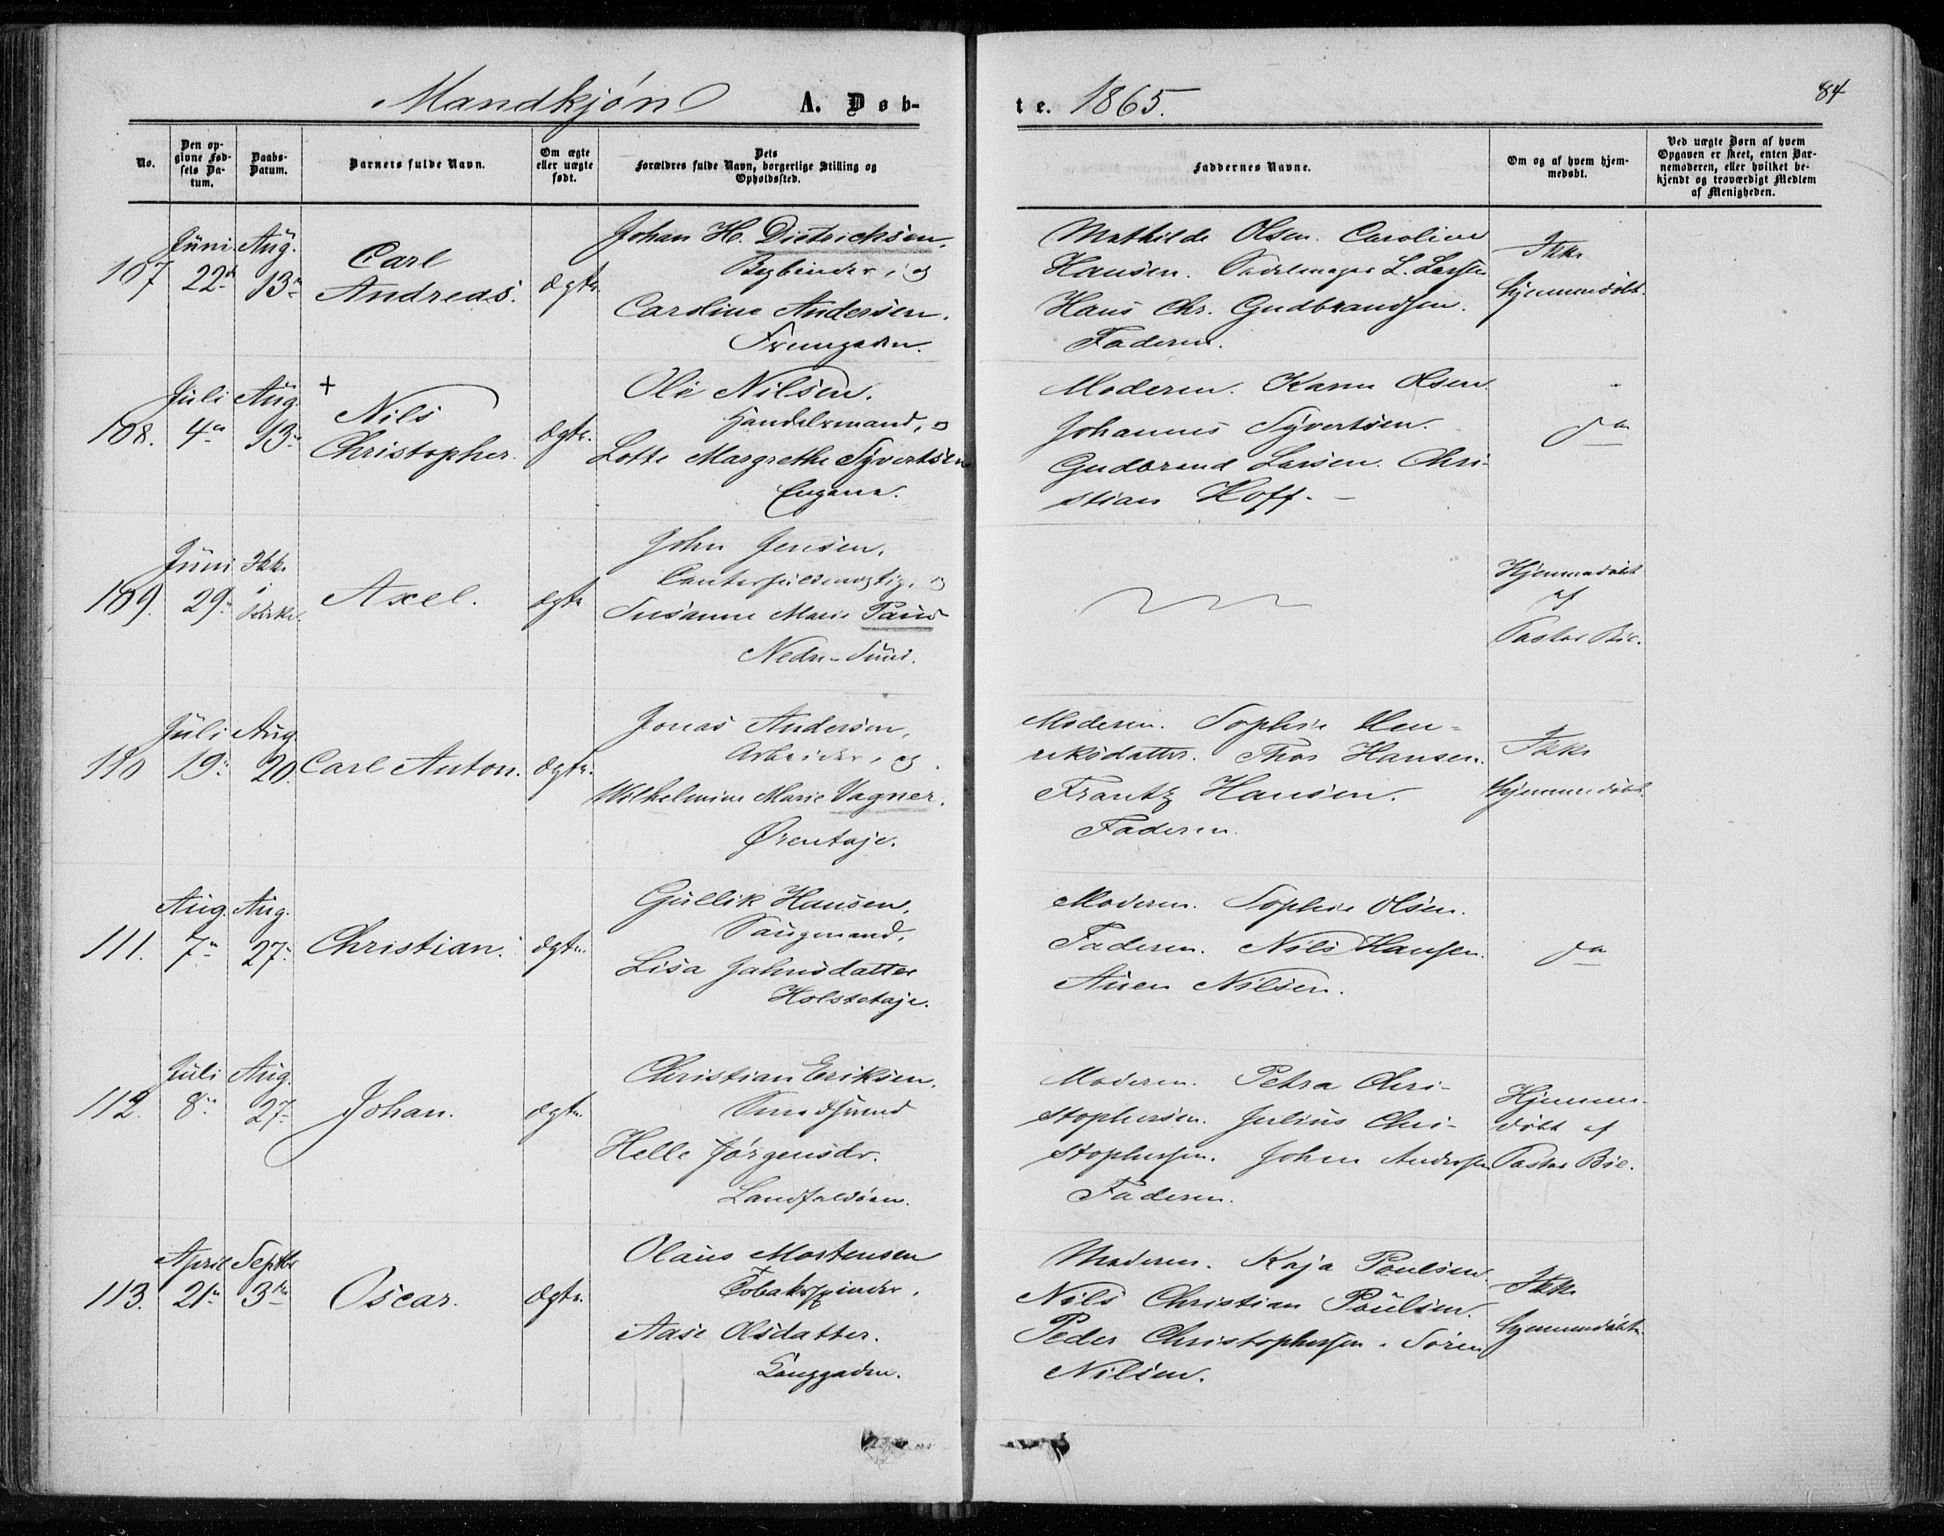 Mandkjøn A. Døb-
te. 1865.
84
No.
Den op-
givne Fød-
sels Da-
tum.
Daabs-
Datum.
Barnets fulde Navn.
Om ægte
eller uægte
født.
Dets
Forældres fulde Navn, borgerlige Stilling og
Opholdssted.
Faddernes Navne.
Om og af hvem hjem-
medøbt.
Ved uægte Børn af hvem
Opgaven er skeet, enten Bar-
nemoderen, eller hvilket be-
kjendt og troværdigt Medlem
af Menigheden.
107
Juni
22
Aug.
13
Carl
Andreas.
ægte.
Johan H. Dietrichsen,
og
Caroline Andersen.
Mathilde Olsen. Caroline
Hansen. Sadelmager L. Larsen
Hans Chr. Gudbrandsen.
Faderen.
Ikke
hjemmedøbt.
108.
Juli
4
Aug.
13
+
Nils
Christopher.
ægte.
Ole Nilsen.
Handelsmand, o
Lotte Margrethe Syvertsen
Engene.
Moderen. Karen Olsen
Johannes Syvertsen.
Gudbrand Larsen. Chri-
stian Hoff. -
do
109.
Juni
29
Ikke
i
Kirke.
Axel.
ægte
John Jensen,
og
Susanne Marie
Nedre-Sund.
Hjemmedøbt
af
Pastor Bie.
110
Juli
19
Aug.
20.
Carl Anton.
ægte.
Jonas Andersen,
Arbeider, og
Wilhelmine Marie Vagner.
Ørentøje.
Moderen. Sophie Hen-
riksdatter. Thor Hansen.
Frantz Hansen.
Faderen.
Ikke
hjemmedøbt.
111.
Aug.
7
Aug.
27.
Christian.
ægte.
Gullik Hansen,
Saugmand,
Lisa Jahnsdatter
Moderen. Sophie Olsen.
Faderen. Nils Hansen.
Nilsen.
do
112.
Juli
8
Aug.
27
Johan.
ægte.
Christian Eriksen,
Smedsvend
Helle Jørgensdr.
Landfaldøen.
Moderen. Petra Chri-
stophersen. Julius Chri-
stophersen. Johan Andersen
Faderen.
Hjemme-
døbt af
Pastor Bie.
113.
April
21
Septbr
3
Oscar.
ægte.
Olaus Mortensen
Tobakspinder,
Aase Olsdatter.
Langgaden.
Moderen. Kaja Poulsen.
Nils Christian Poulsen.
Peder Christophersen. Søren
Nilsen.
Ikke
hjemmedøbt